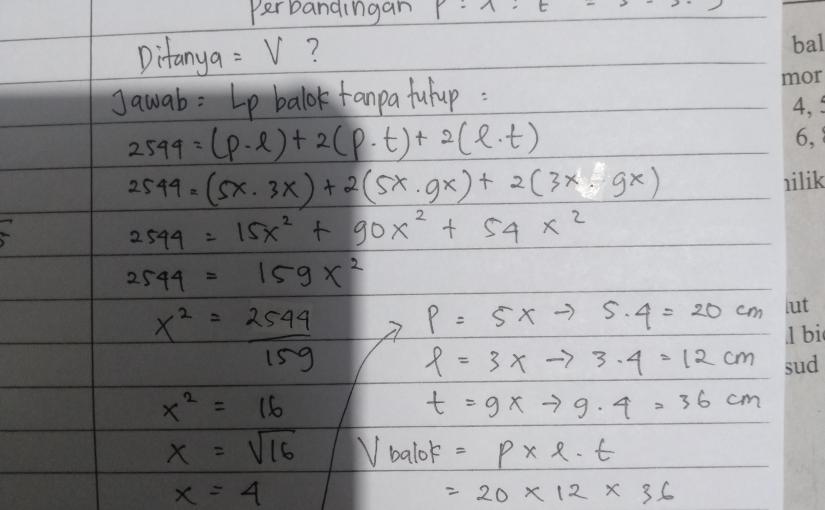 Perbandingan p : l : t = 5 : 3 : 9
Ditanya = V ?
Jawab = Lp balok tanpa tutup =
2544 = (p.l) + 2(p.t) + 2(l.t)
2544 = (5x . 3x) + 2(5x . 9x) + 2(3x . 9x)
2544 = 15x² + 90x² + 54x²
2544 = 159x²
x² = 2544/159
x² = 16
x = √16
x = 4
p = 5x → 5.4 = 20 cm
l = 3x → 3.4 = 12 cm
t = 9x → 9.4 = 36 cm
V balok = p x l . t
= 20 x 12 x 36
bal
mor
4, 5
6,
nilik
lut
l bi
sud